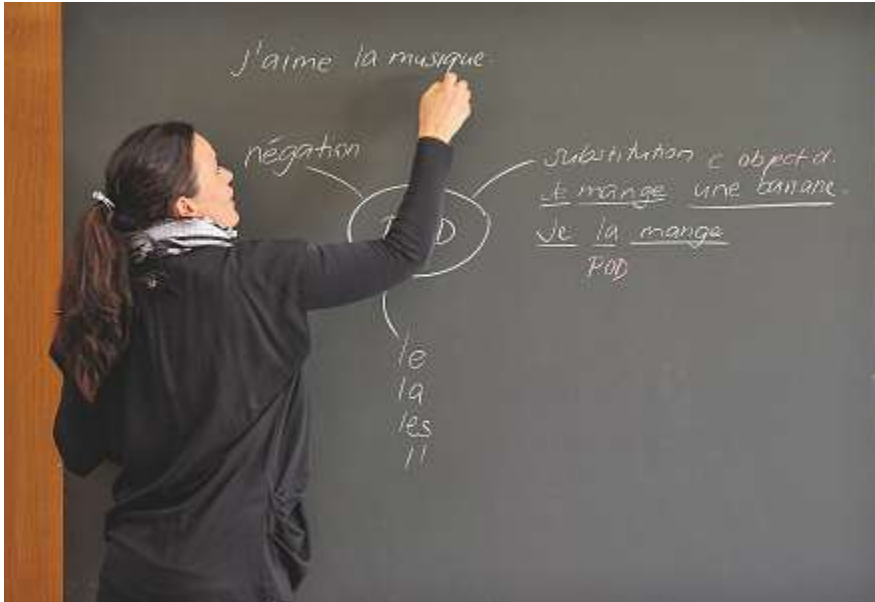 J'aime la musique.
négation
substitution c object d.
Je mange une banane.
Je la mange
POD
D
le
la
les
l'